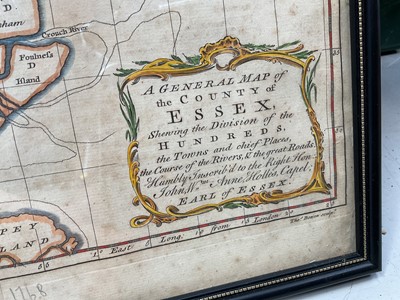 D.
ham
Crouch River
Foulness
D
Island
A GENERAL MAP of
the COUNTY of
ESSEX,
Shewing the Division of the
HUNDREDS,
the Towns and chief Places,
the Course of the Rivers, & the great Roads.
Humbly Inscrib'd to the Right Hon.
John, Wm. Anne, Holles, Capel,
EARL of ESSEX.
PEY
LAND
1° East Long: from London
1768